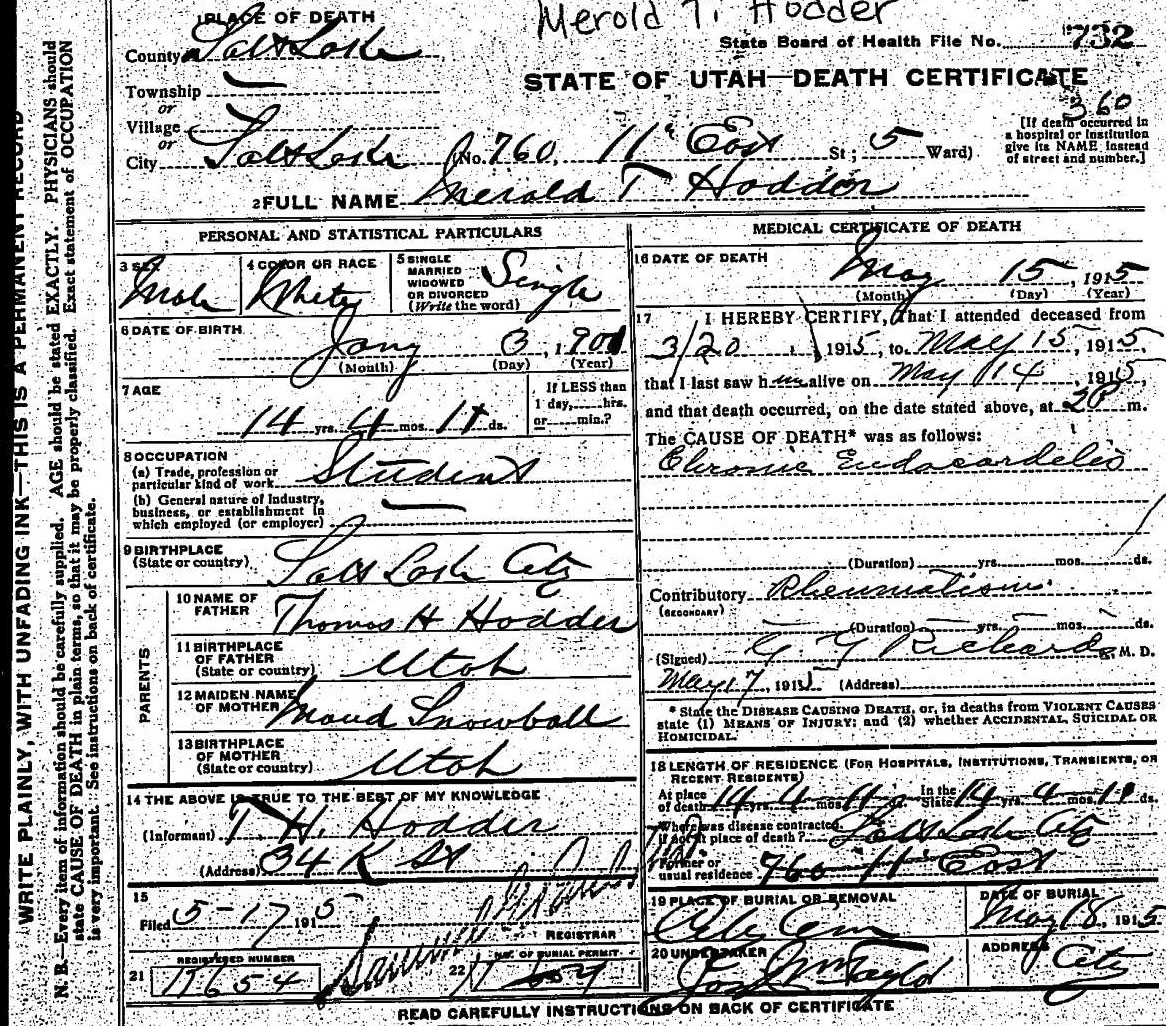 Merold T. Hodder
1 PLACE OF DEATH
State Board of Health File No. 732
County Salt Lake
STATE OF UTAH—DEATH CERTIFICATE
360
Township —
or
Village
or
City Salt Lake (No. 760, 11" East St; 5 Ward)
[If death occurred in
a hospital or institution
give its NAME instead
of street and number.]
2 FULL NAME Merold T Hodder
PERSONAL AND STATISTICAL PARTICULARS
3 SEX Male
4 COLOR OR RACE White
5 SINGLE
MARRIED
WIDOWED
OR DIVORCED
(Write the word) Single
6 DATE OF BIRTH
Jany 3, 1901
(Month) (Day) (Year)
7 AGE
14 yrs. 4 mos. 11 ds.
If LESS than
1 day, hrs.
or min.?
8 OCCUPATION
(a) Trade, profession or
particular kind of work Student
(b) General nature of Industry,
business, or establishment in
which employed (or employer) —
9 BIRTHPLACE
(State or country) Salt Lake City
PARENTS
10 NAME OF
FATHER Thomas H Hodder
11 BIRTHPLACE
OF FATHER
(State or country) Utah
12 MAIDEN NAME
OF MOTHER Maud Snowball
13 BIRTHPLACE
OF MOTHER
(State or country) Utah
14 THE ABOVE IS TRUE TO THE BEST OF MY KNOWLEDGE
(Informant) T. H. Hodder
(Address) 34 K St
15
Filed 5-17 1915
REGISTRAR
21 REGISTERED NUMBER
22 NO. OF BURIAL PERMIT
MEDICAL CERTIFICATE OF DEATH
16 DATE OF DEATH
May 15, 1915
(Month) (Day) (Year)
17 I HEREBY CERTIFY, That I attended deceased from
3/20, 1915, to May 15, 1915.
that I last saw him alive on May 14, 1915,
and that death occurred, on the date stated above, at 2P m.
The CAUSE OF DEATH* was as follows:
Chronic Endocarditis
(Duration) yrs. mos. ds.
Contributory Rheumatism
(SECONDARY)
(Duration) yrs. mos. ds.
(Signed) G. G. Richards M. D.
May 17, 1915 (Address)
* State the DISEASE CAUSING DEATH, or, in deaths from VIOLENT CAUSES
state (1) MEANS OF INJURY; and (2) whether ACCIDENTAL, SUICIDAL OR
HOMICIDAL.
18 LENGTH OF RESIDENCE (FOR HOSPITALS, INSTITUTIONS, TRANSIENTS, OR
RECENT RESIDENTS)
At place
of death 14 yrs. 4 mos. 11 ds. In the
State 14 yrs. 4 mos. 11 ds.
Where was disease contracted
if not at place of death? Salt Lake City
Former or
usual residence 760-11" East
19 PLACE OF BURIAL OR REMOVAL
City Cem
DATE OF BURIAL
May 18, 1915
20 UNDERTAKER
Jos Wm Taylor
ADDRESS
City
READ CAREFULLY INSTRUCTIONS ON BACK OF CERTIFICATE
WRITE PLAINLY, WITH UNFADING INK—THIS IS A PERMANENT RECORD
N. B.—Every item of information should be carefully supplied. AGE should be stated EXACTLY. PHYSICIANS should
state CAUSE OF DEATH in plain terms, so that it may be properly classified. Exact statement of OCCUPATION
is very important. See instructions on back of certificate.